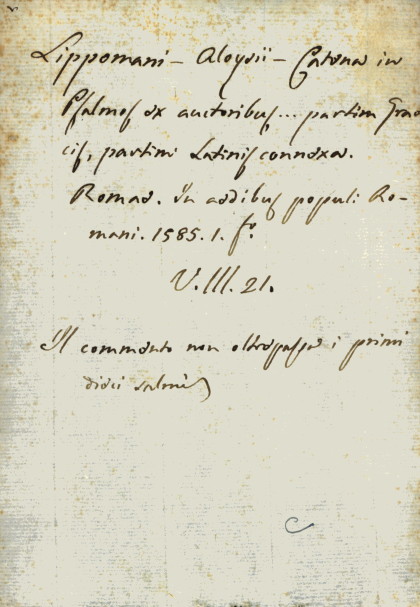 Lippomani - Aloysii - Catena in
Psalmos ex auctoribus... partim Grae
cis, partim Latinis connexa.
Romae. In aedibus populi Ro-
mani. 1585. 1. fo.
V. III. 21.
Il commento non oltrepassa i primi
dieci salmi